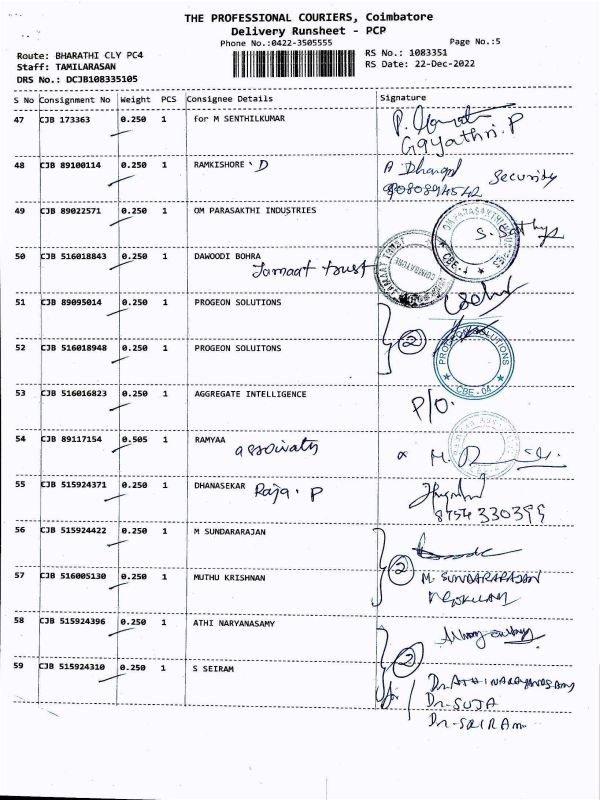 THE PROFESSIONAL COURIERS, Coimbatore
Delivery Runsheet - PCP
Phone No.:0422-3505555
Page No.:5
Route: BHARATHI CLY PC4
RS No.: 1083351
Staff: TAMILARASAN
RS Date: 22-Dec-2022
DRS No.: DCJB108335105
S No Consignment No Weight PCS Consignee Details Signature
47 CJB 173363 0.250 1 for M SENTHILKUMAR
Gayathri. P
48 CJB 89100114 0.250 1 RAMKISHORE D
Security
49 CJB 89022571 0.250 1 OM PARASAKTHI INDUSTRIES
OM PARASAKTHI INDUSTRIES
CBE-4
50 CJB 516018843 0.250 1 DAWOODI BOHRA
Jamaat trust
51 CJB 89095014 0.250 1 PROGEON SOLUTIONS
2
52 CJB 516018948 0.250 1 PROGEON SOLUITONS
PROGEON SOLUTIONS
CBE-04
53 CJB 516016823 0.250 1 AGGREGATE INTELLIGENCE
P/O.
54 CJB 89117154 0.505 1 RAMYAA
55 CJB 515924371 0.250 1 DHANASEKAR Raja. P
8754330399
56 CJB 515924422 0.250 1 M SUNDARARAJAN
2
57 CJB 516005130 0.250 1 MUTHU KRISHNAN
M. SUNDARARAJAN
58 CJB 515924396 0.250 1 ATHI NARYANASAMY
2
59 CJB 515924310 0.250 1 S SEIRAM
for
Dr. SUJA
Dr. SRIRAM